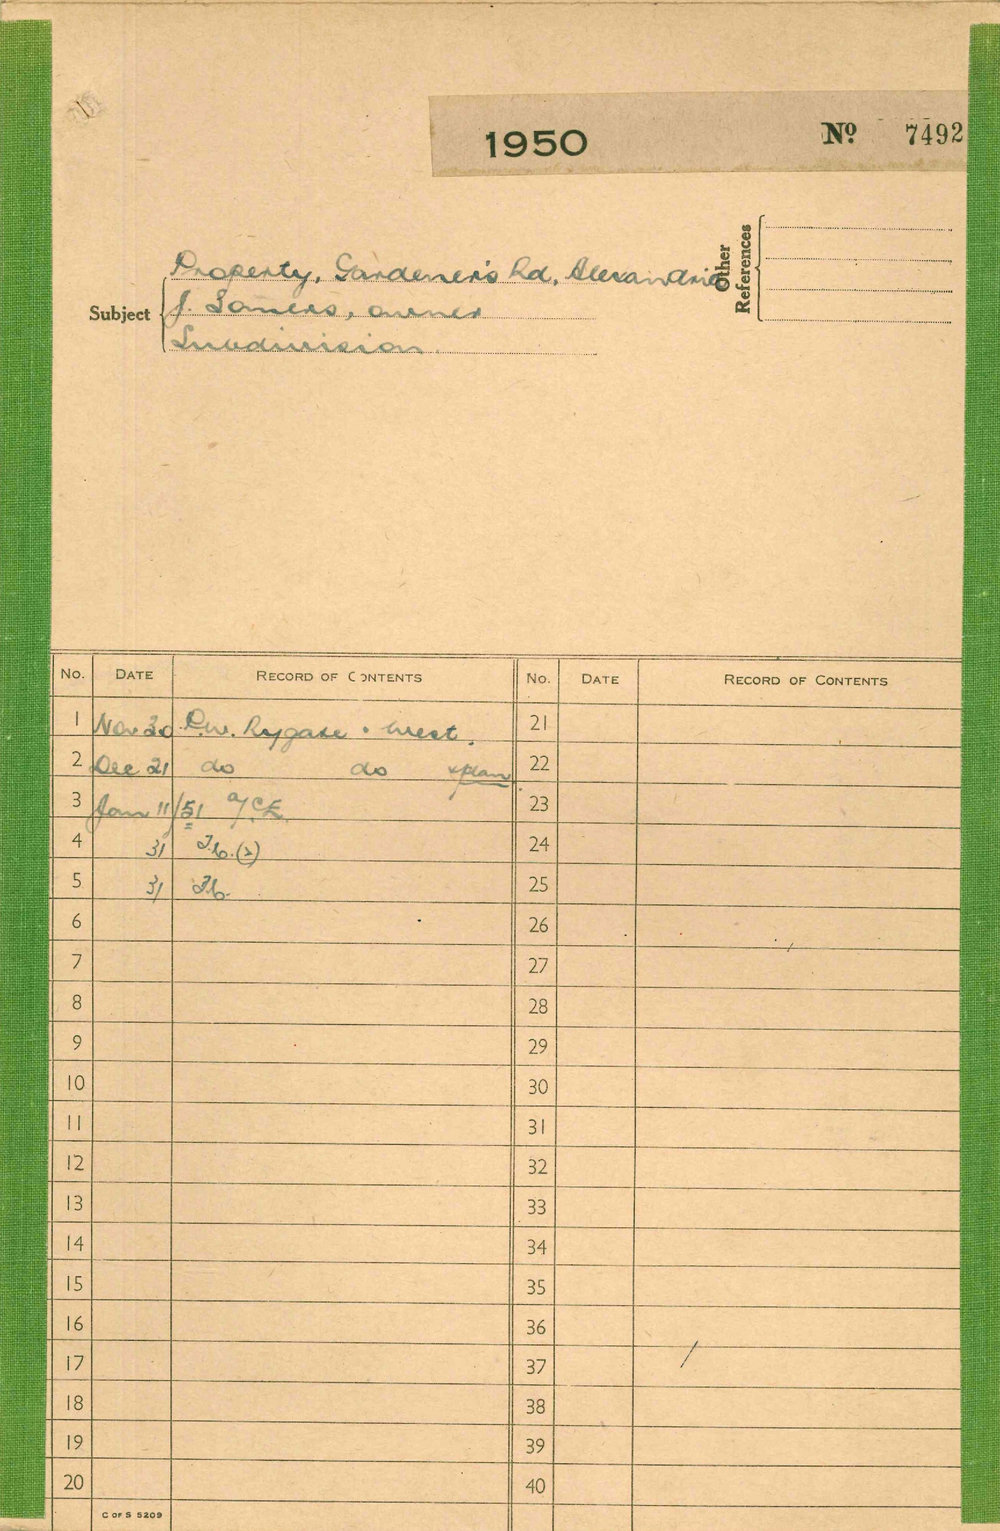 1950 No 7492
Other References
Subject
Property, Gardener's Rd, Alexandria
J. Somers, owner
Subdivision.
No. DATE RECORD OF CONTENTS No. DATE RECORD OF CONTENTS
1 Nov 30 P.W. Rygate & West. 21
2 Dec 21 do do & plan 22
3 Jan 11/51 23
4 31 (2) 24
5 31 25
6 26
7 27
8 28
9 29
10 30
11 31
12 32
13 33
14 34
15 35
16 36
17 37
18 38
19 39
20 40
C OF S 5209